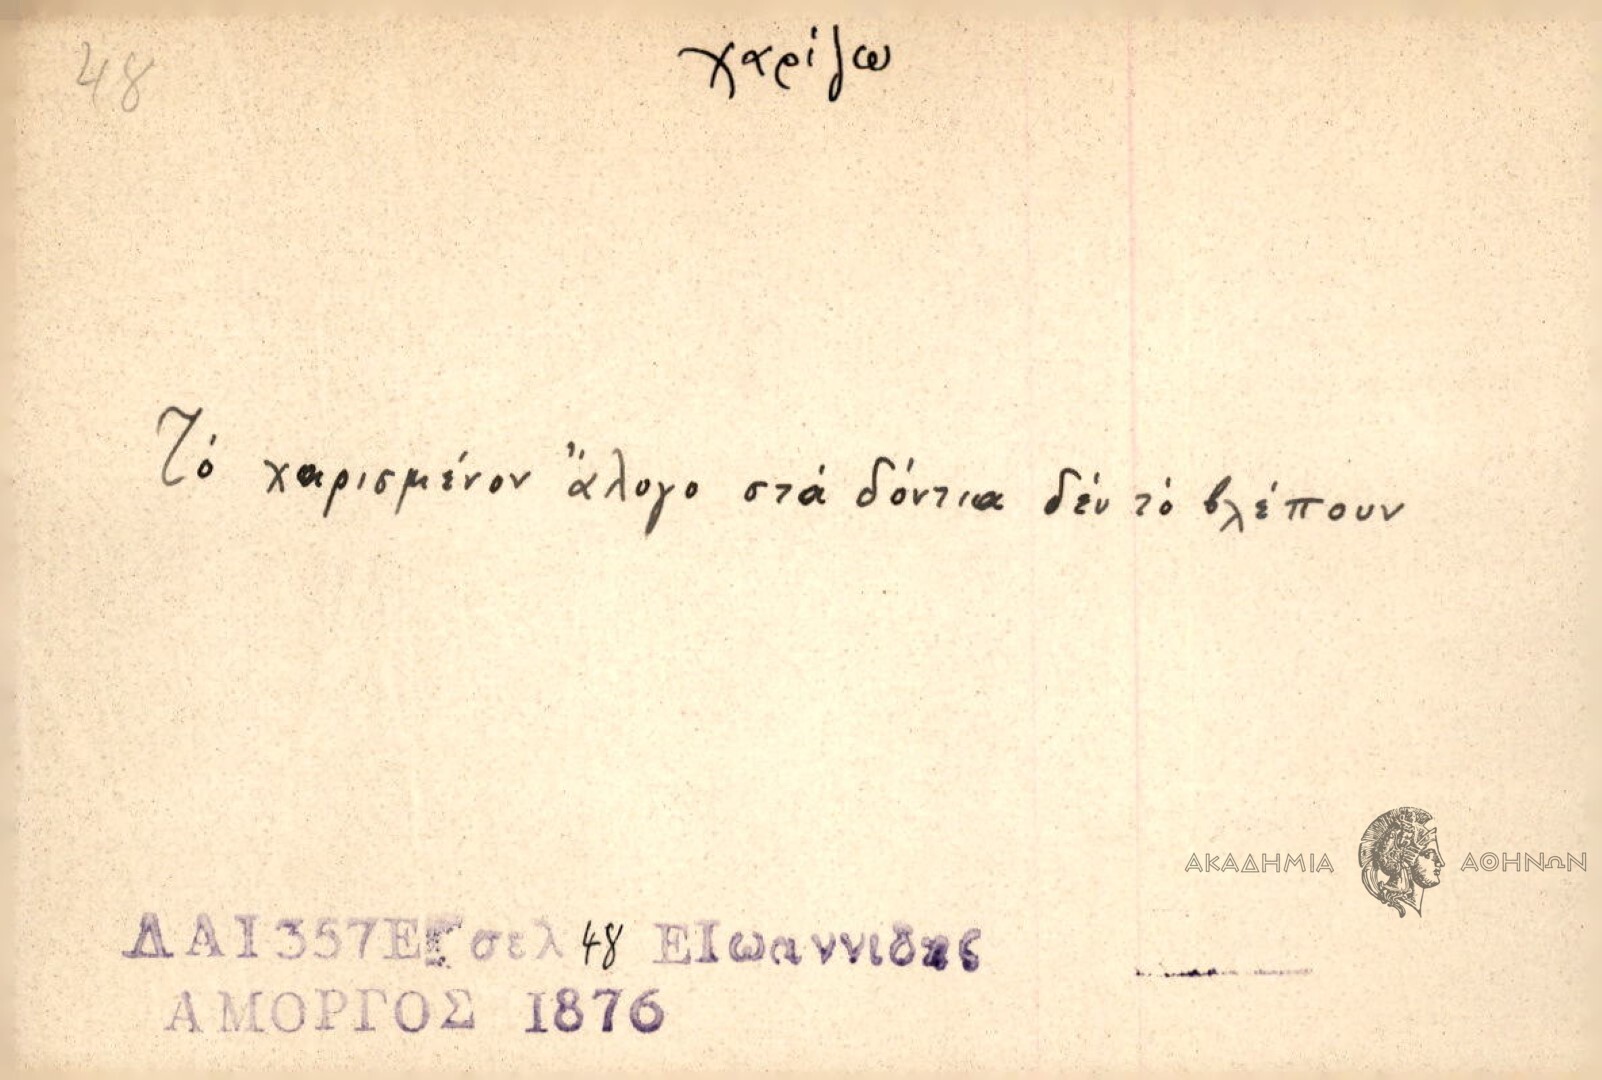 48
χαρίζω
Τό χαρισμένον ἄλογο στά δόντια δέν τό βλέπουν
ΑΚΑΔΗΜΙΑ ΑΘΗΝΩΝ
ΔΑΙ357Ες σελ 48 ΕΙωαννιδης
ΑΜΟΡΓΟΣ 1876